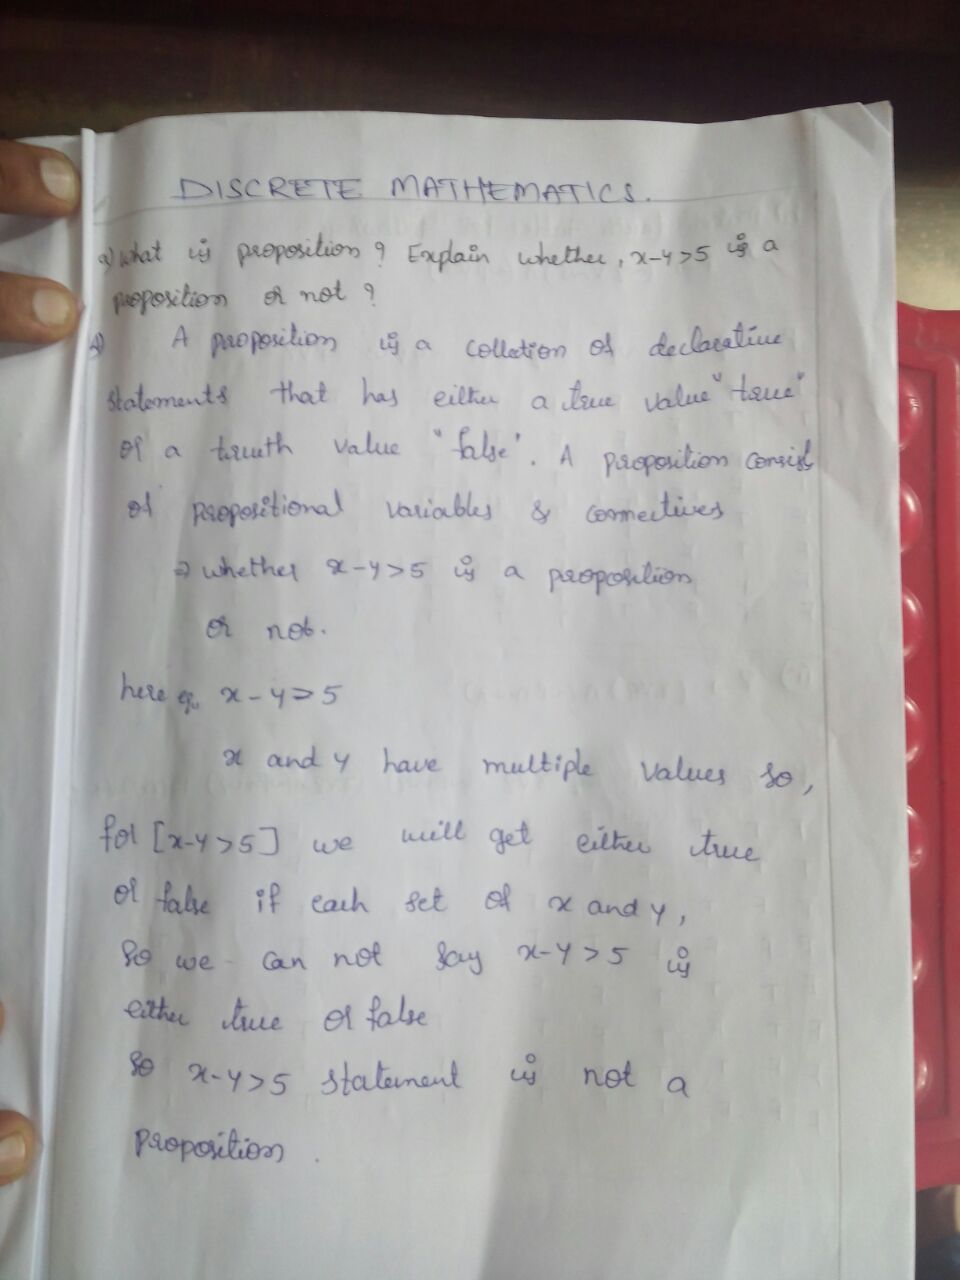 DISCRETE MATHEMATICS.
Q) what is proposition? Explain whether, x-y>5 is a
proposition or not?
A) A proposition is a collection of declarative
statements that has either a true value "true"
or a truth value "false". A proposition consist
of propositional variables & connectives
⇒ whether x-y>5 is a proposition
or not.
here eq. x-y>5
x and y have multiple values so,
for [x-y>5] we will get either true
or false if each set of x and y,
so we can not say x-y>5 is
either true or false
so x-y>5 statement is not a
proposition.